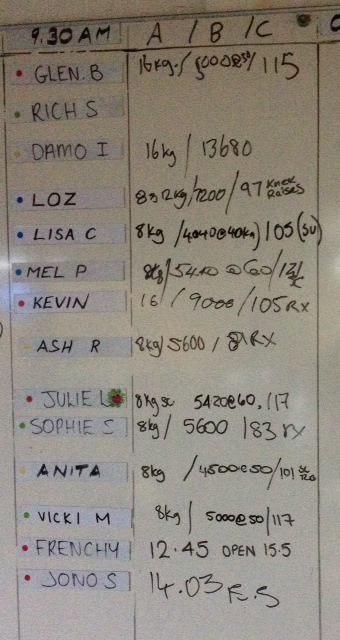 9.30 AM A / B / C
GLEN. B 16kg. / 5000@50/ 115
RICH S
DAMO I 16kg / 13680
LOZ 8>12kg/7200 / 97 Knee Raises
LISA C 8kg /4040@40kg) 105 (SU)
MEL P 8kg/5440 @60 /121/ SC
KEVIN 16 / 9000 /105 RX
ASH R 8kg/5600 / 81 RX
JULIE L 8kg SC 5420@60. /17
SOPHIE S 8kg/ 5600 /83 rx
ANITA 8kg /4500@50/101
VICKI M 8kg/ 5000@50/117
FRENCHY 12.45 OPEN 15.5
JONO S 14.03